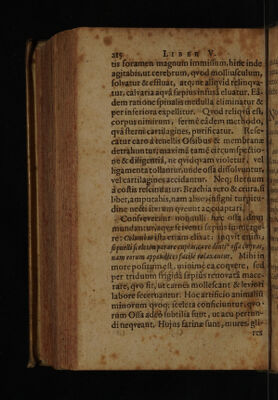 215 LIBER V.
tis foramen magnum immissum, hinc inde
agitabis, ut cerebrum, qvod molliusculum,
solvatur & effluat, atqve aliqvid relinqva-
tur, calvaria aqvâ sæpius infusâ eluatur. Eâ-
dem ratione spinalis medulla eliminatur &
per inferiora expellitur. Qvod reliqvũ est,
corpus nimirum, fermè eadem methodo,
qvâ sterni cartilagines, purificatur. Rese-
catur caro à tenellis Ossibus & membranæ
detrahuntur, maximâ tamē circumspectio-
ne & diligentiâ, ne qvidqvam violetur, vel
ligamenta tollantur, unde ossa dissolvuntur,
vel cartilagines accidantur. Neq; sternum
à costis rescinditur. Brachia vero & crura, si
liber, amputabis, nam absque insigni turpitu-
dine necti iterum qveunt ac coaptari.
Consveverant nonnulli hæc ossa, dum
mundantur, aqvæ ferventi sæpius immerge-
re: inqvit enim,
nam earum appendices facilè relaxantur. Mihi in
more positum est, minimè ea convere, sed
per triduum frigidâ sæpius removatâ mace-
rare, qvo fit, ut carnes mollescant & leviori
labore secernantur. Hoc artificio animaliũ
minorum qvoq; sceleta consciuntur, qvo-
rum Ossa adeò subtilia sunt, ut acu pertun-
di neqveant. Hujus farinæ sunt, mures, gli-
res